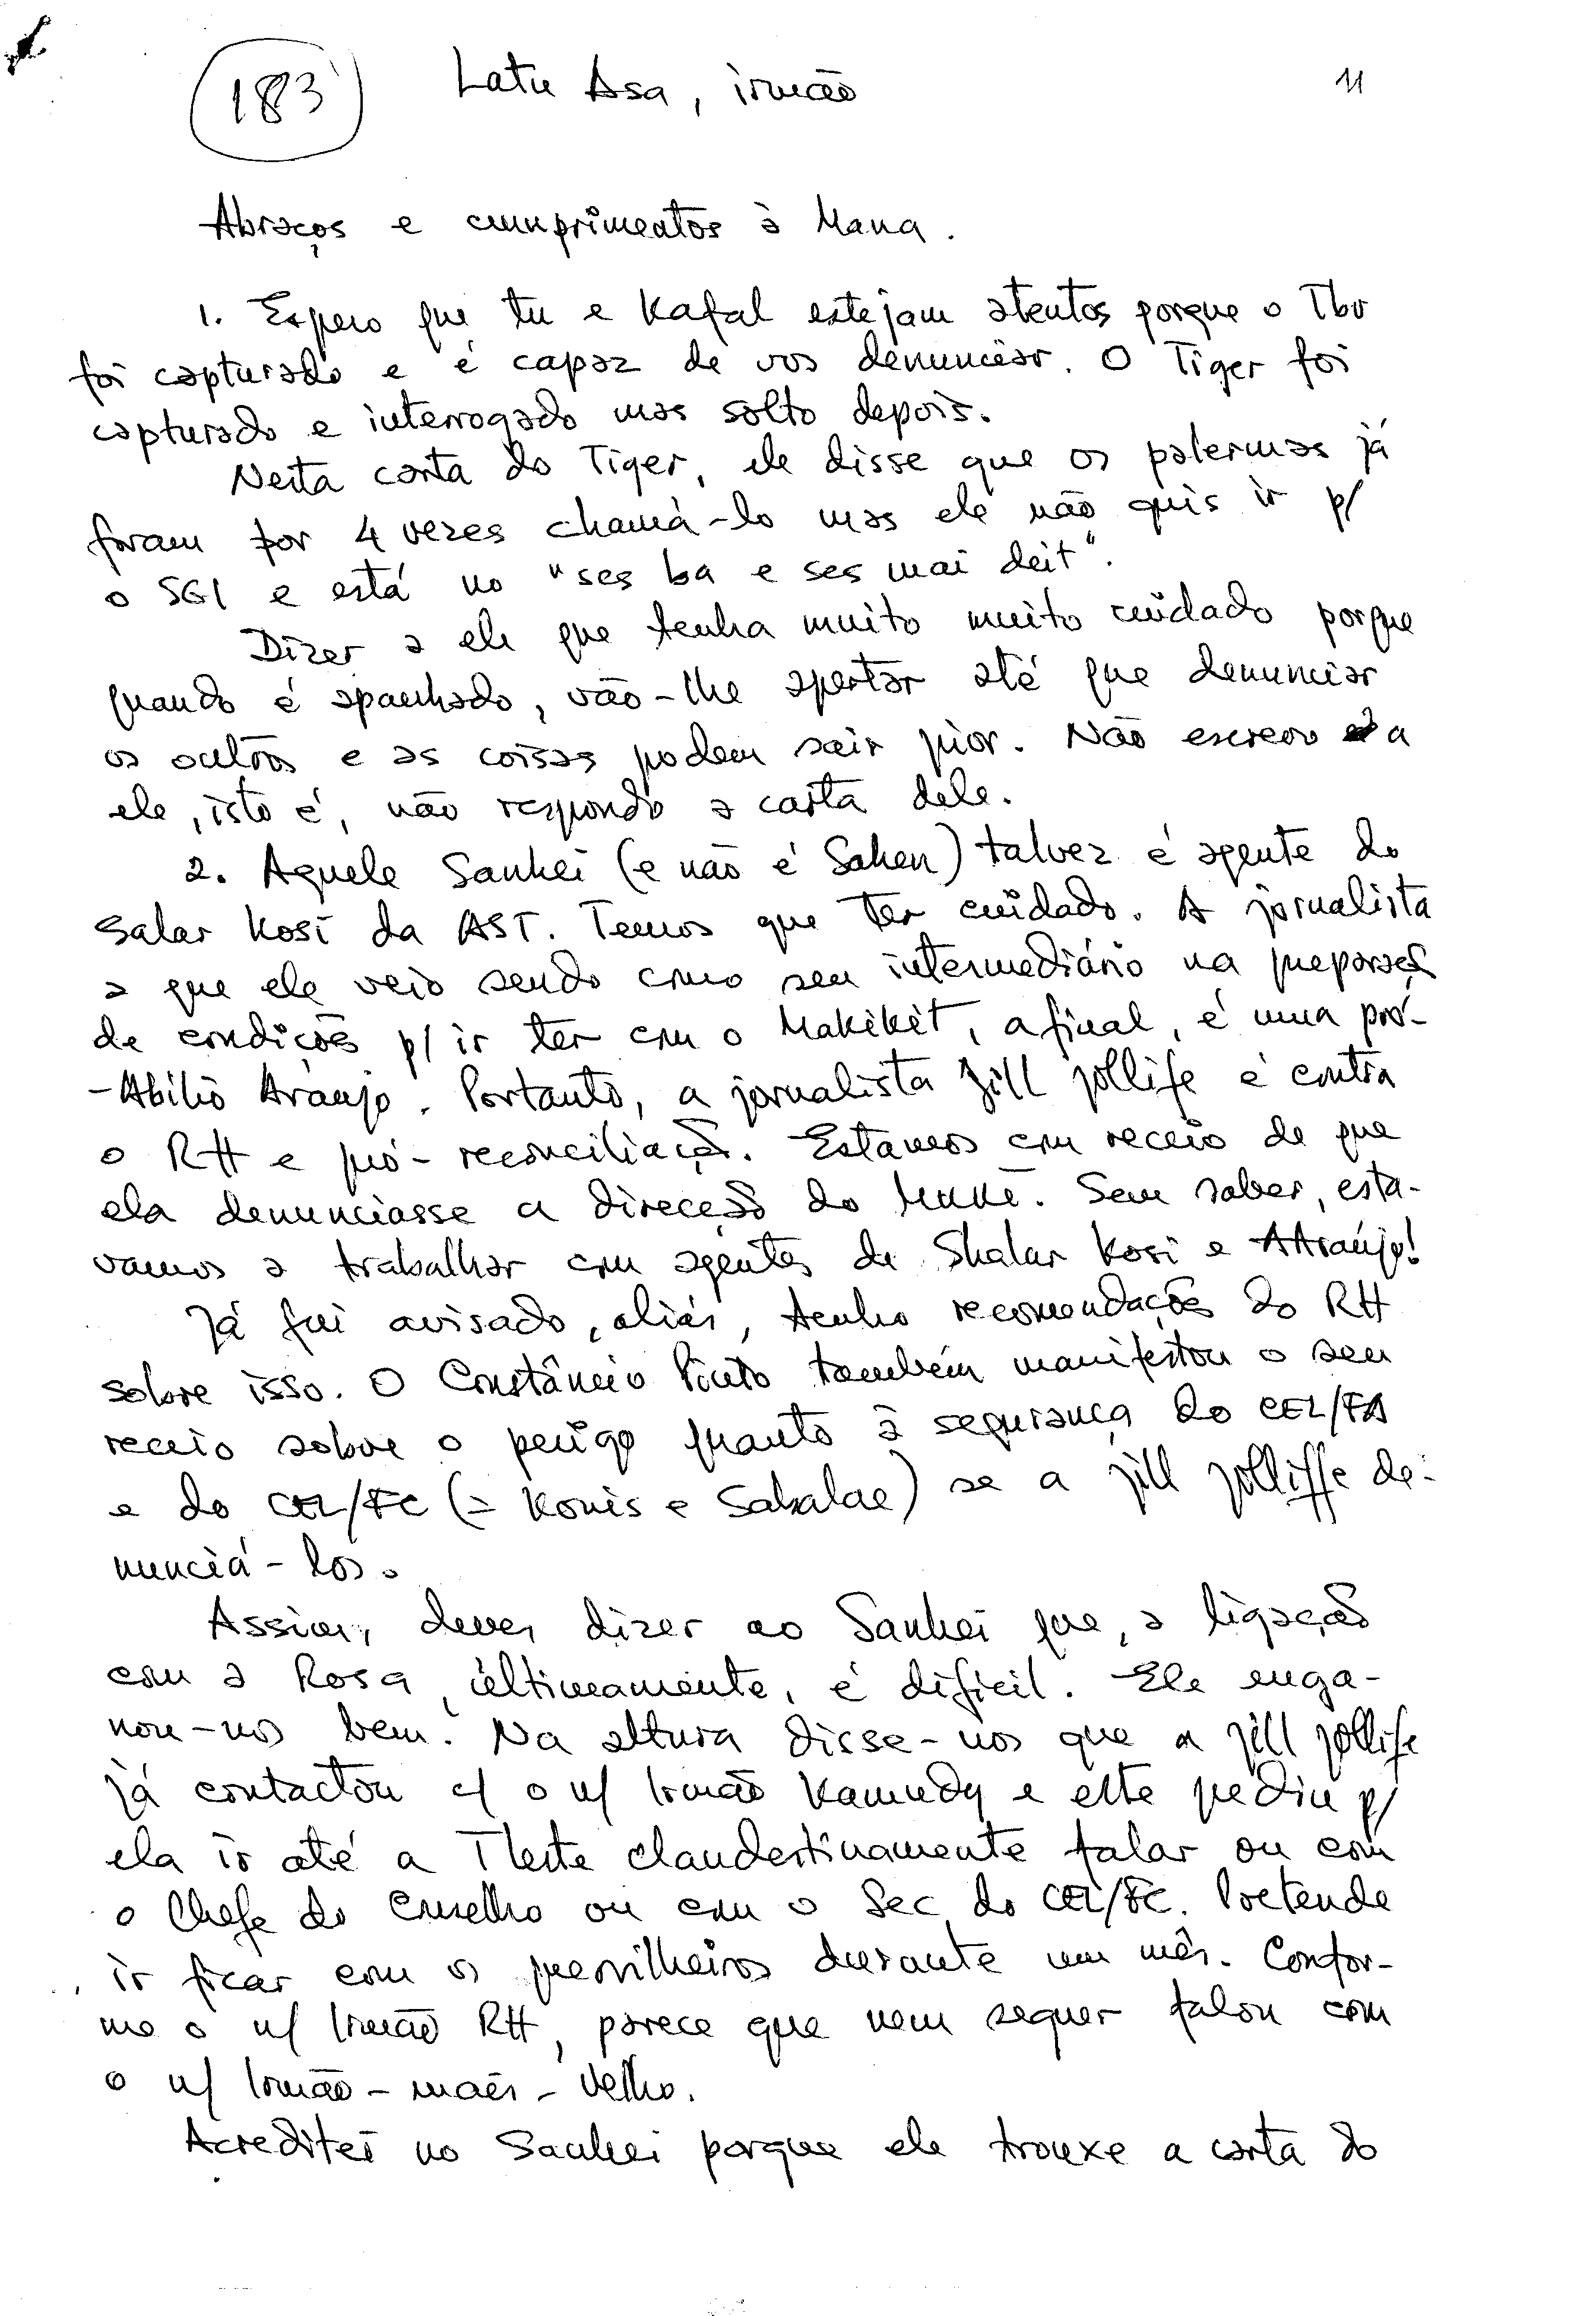 183 Latu Asa, irmão 11
Abraços e cumprimentos à Mana.
1. Espero que tu e Kafal estejam atentos porque o Tbo
foi capturado e é capaz de vos denunciar. O Tiger foi
capturado e interrogado mas solto depois.
Nesta carta do Tiger, ele disse que os palermas já
foram por 4 vezes chamá-lo mas ele não quis ir p/
o SGI e está no "ses ba e ses mai deit".
Dizer a ele que tenha muito muito cuidado porque
quando é apanhado, vão-lhe apertar até que denunciar
os outros e as coisas podem sair pior. Não escrevo a
ele, isto é, não respondo a carta dele.
2. Aquele Sanhei (e não é Sahen) talvez é agente do
Salar Kosi da AST. Temos que ter cuidado. A jornalista
a que ele veio sendo como seu intermediário na preparação
de condições p/ ir ter com o Makikit, afinal, é uma pró-
-Abílio Araújo. Portanto, a jornalista Jill Jollife é contra
o RH e pró-reconciliação. Estamos com receio de que
ela denunciasse a direcção do . Sem saber, esta-
vamos a trabalhar com agentes de Shalar Kosi e AAraújo!
Já fui avisado, aliás, tenho recomendações do RH
sobre isso. O Constâncio Pinto também manifestou o seu
receio sobre o perigo quanto à segurança do CEL/FA
e do CEL/FC (= Konis e Sabalae) se a Jill Jolliffe de-
nunciá-los.
Assim, deves dizer ao Sanhei que, a ligação
com a Rosa, últimamente, é difícil. Ele enga-
nou-nos bem. Na altura disse-nos que a Jill Jollife
já contactou c/ o n/ Irmão Kamudy e este pediu p/
ela ir até a TLeste clandestinamente falar ou com
o Chefe do Conselho ou com o Sec. do CEL/FC. Pretende
ir ficar com os guerrilheiros durante um mês. Confor-
me o n/ Irmão RH, parece que nem sequer falou com
o n/ Irmão-mais-Velho.
Acreditei no Sanhei porque ele trouxe a carta do